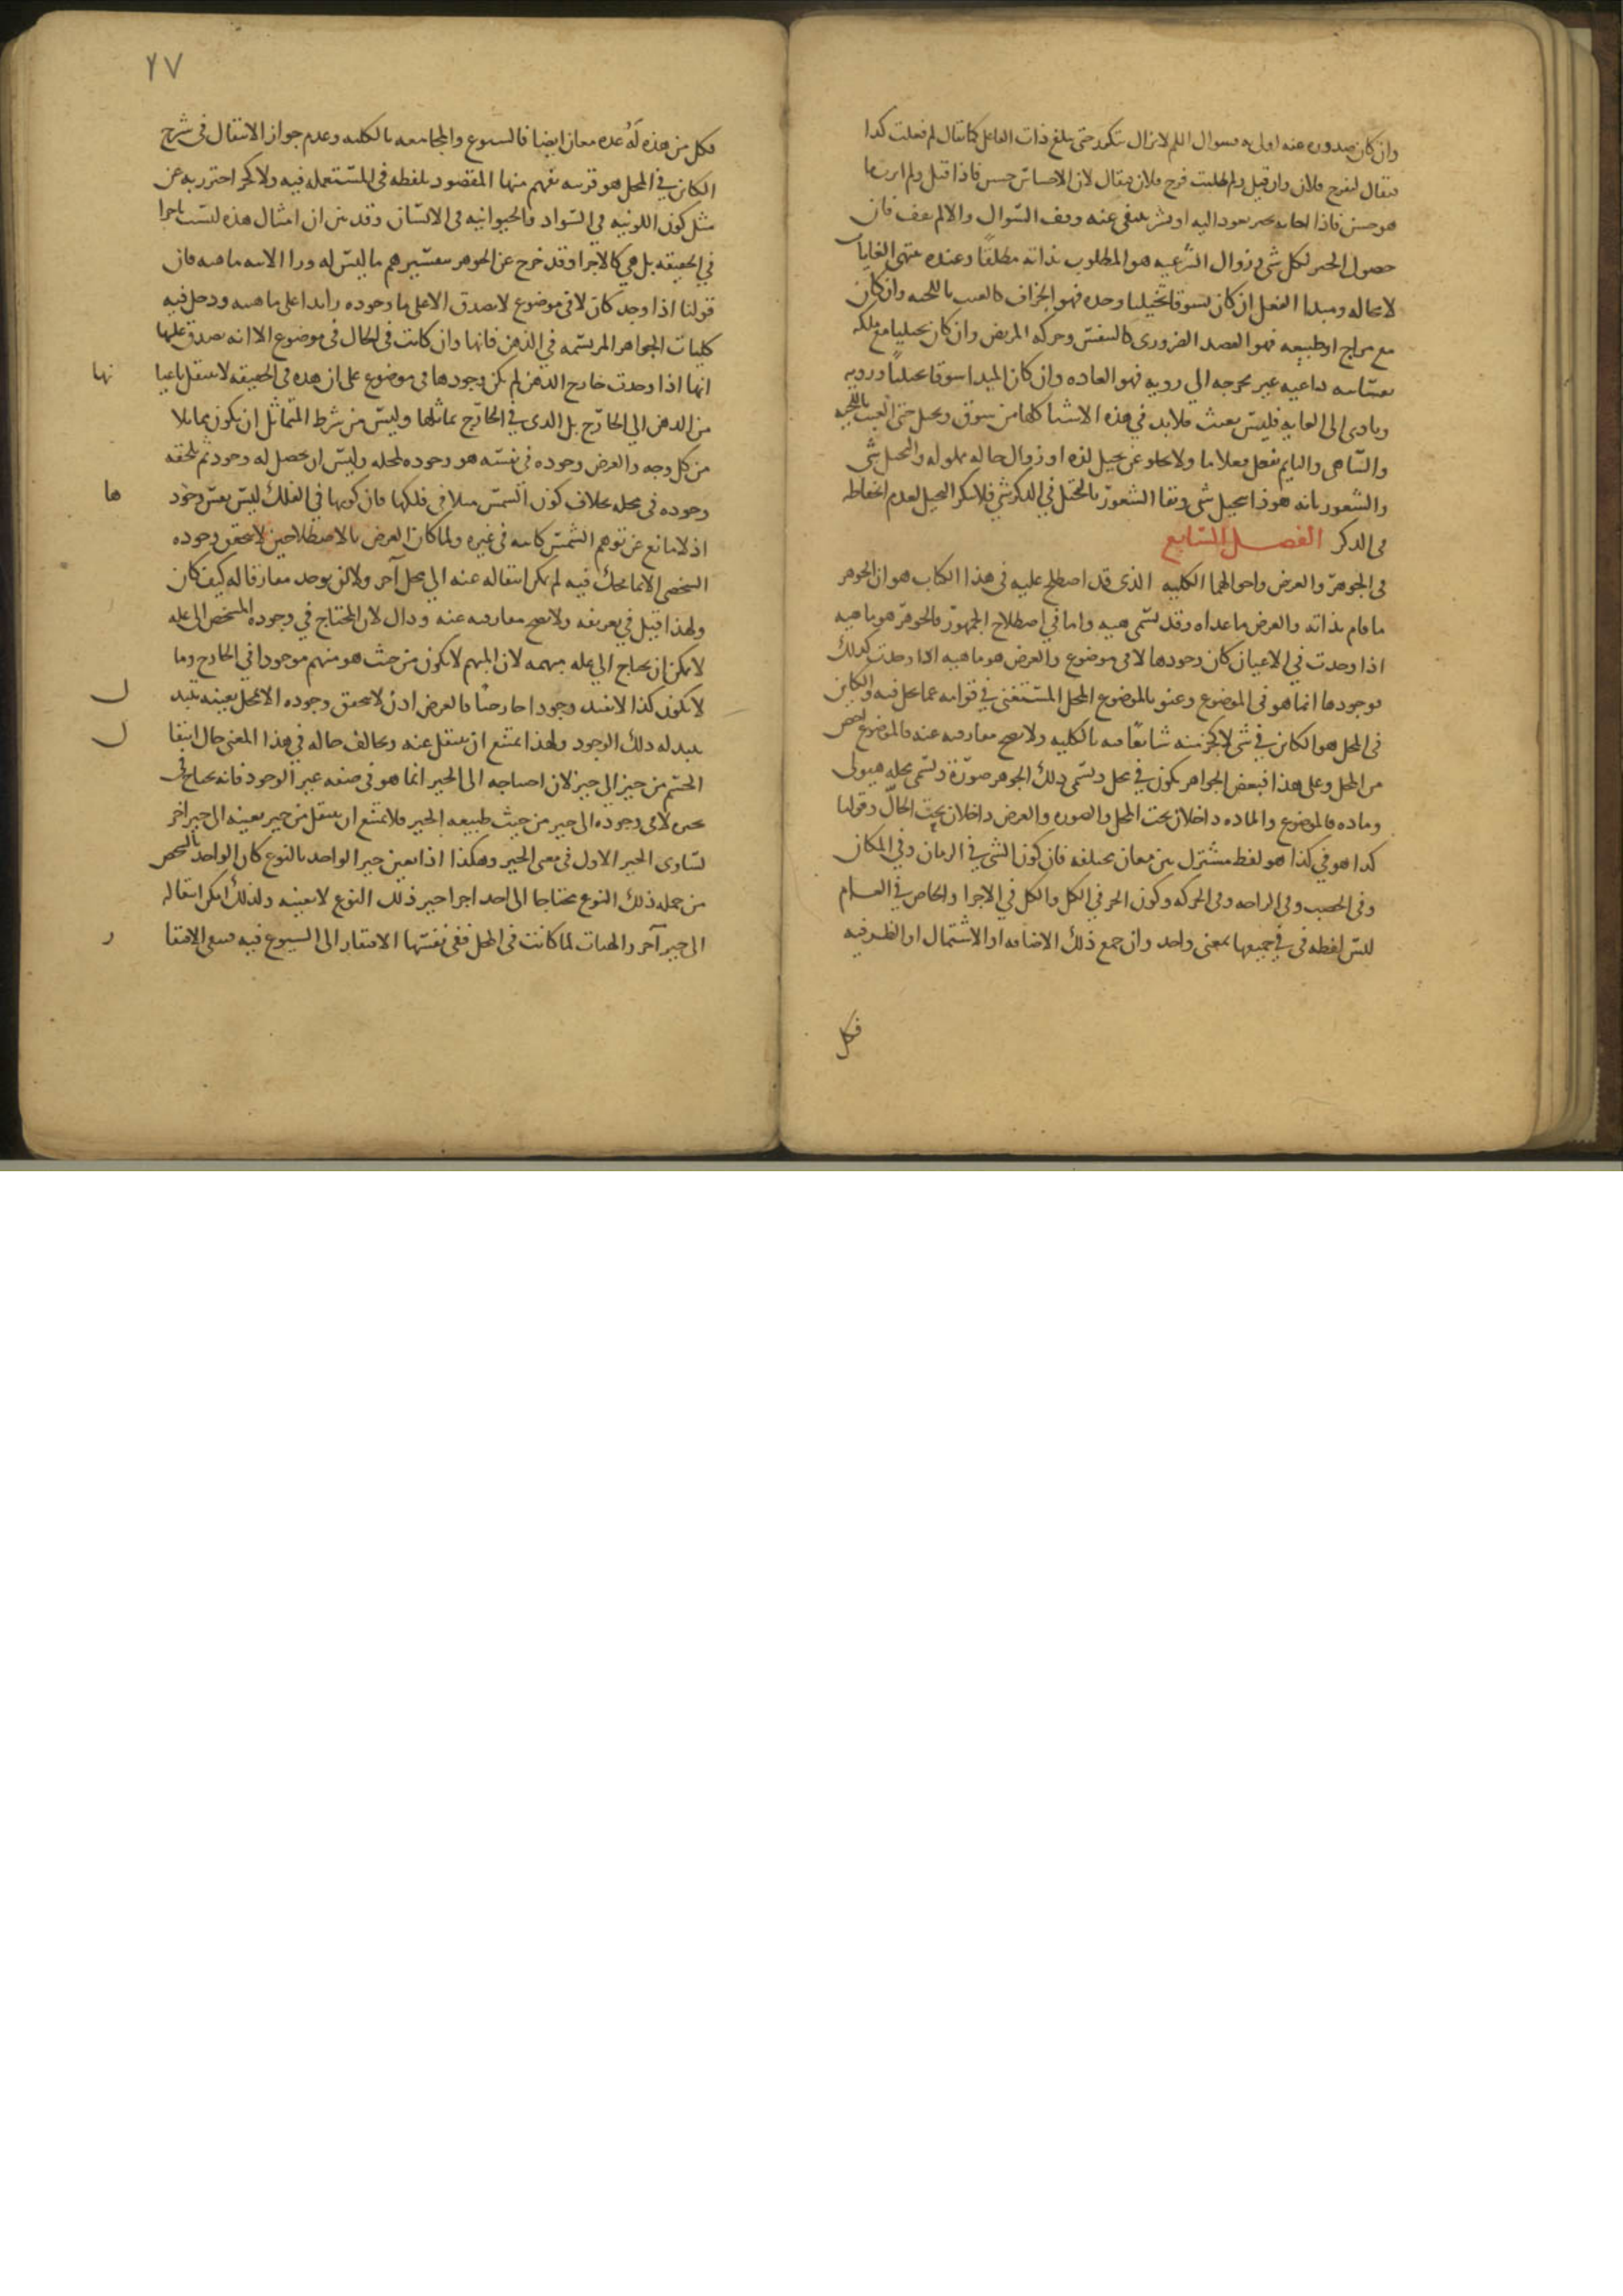 وان كان صدوره عنه اولى به فسوال اللم لا يزال يتكرر حتى يبلغ ذات الفاعل كما يقال لم فعلت كذا
فيقال ليفرح فلان وان قيل ولم طلبت فرح فلان فيقال لان الاحسان حسن فاذا قيل ولم
هو حسن فاذا اجاب بخير يعود اليه او شر ينتفى عنه وقف السوال والا لم يقف فان
حصول الخير لكل شى وزوال الشر عنه هو المطلوب بذاته مطلقا وعنده تنتهى الغايات
لا محاله ومبدا الفعل ان كان تشوقا تخيليا وحده فهو الجزاف كالعبث باللحيه وان كان
مع مزاج او طبيعه فهو القصد الضرورى كالتنفس وحركه المريض وان كان تخيليا مع ملكه
نفسانيه داعيه غير محوجه الى رويه فهو العاده وان كان المبدا شوقا تخيليا ورويه
وتادى الى الغايه فليس بعبث فلا بد في هذه الاشيا كلها من شوق وتخيل حتى العبث باللحيه
والساهى والنايم يفعل فعلا ما ولا يخلو عن تخيل لذه او زوال حاله مملوله والتخيل شى
والشعور بانه هوذا يتخيل شى وبقا الشعور بالتخيل في الذكر شى فلا ينكر التخيل لعدم انحفاظه
فى الذكر الفصل السابع
فى الجوهر والعرض واحوالهما الكليه الذى قد اصطلح عليه فى هذا الكتاب هو ان الجوهر
ما قام بذاته والعرض ما عداه وقد يسمى هيه واما في اصطلاح الجمهور فالجوهر هو ماهيه
اذا وجدت في الاعيان كان وجودها لا في موضوع والعرض هو ماهيه اذا وجدت كذلك
فوجودها انما هو فى الموضوع وعنو بالموضوع المحل المستغنى في قوامه عما يحل فيه والكاين
فى المحل هو الكاين في شى لا كجز منه شايعا فيه بالكليه ولا يصح مفارقته عنه فالموضوع اخص
من المحل وعلى هذا فبعض الجواهر يكون في محل ويسمى ذلك الجوهر صورة ويسمى محله هيولى
وماده فالموضوع والماده داخلان تحت المحل والصوره والعرض داخلان تحت الحال وقولنا
كذا هو في كذا هو لفظ مشترك بين معان مختلفه فان كون الشى في الزمان وفي المكان
وفى الخصب وفى الراحه وفى الحركه وكون الجز في الكل والكل في الاجزا والخاص في العام
ليس لفظه فى في جميعها بمعنى واحد وان جمع ذلك الاضافه او الاشتمال او الظرفيه
فكل
٢٧
فكل من هذه له عده معان ايضا فالشيوع والمجامعه بالكليه وعدم جواز الانتقال فى شرح
الكاين في المحل هو قرينه تفهم منها المقصود بلفظه فى المستعمله فيه ولا كجز احترز به عن
مثل كون اللونيه في السواد والحيوانيه فى الانسان وقد بين ان امثال هذه ليست اجزا
في الحقيقه بل هي كالاجزا وقد خرج عن الجوهر بتفسيرهم ما ليس له ورا الانيه ماهيه فان
قولنا اذا وجد كان لا فى موضوع لا يصدق الا على ما وجوده زايدا على ماهيته ودخل فيه
كليات الجواهر المرتسمه في الذهن فانها وان كانت فى الحال فى موضوع الا انه يصدق عليها
انها اذا وجدت خارج الذهن لم يكن وجودها فى موضوع على ان هذه فى الحقيقه لا تنتقل باعيا
نها
من الذهن الى الخارج بل الذى في الخارج مماثلها وليس من شرط المتماثل ان يكون مماثلا
من كل وجه والعرض وجوده فى نفسه هو وجوده لمحله وليس ان يحصل له وجود ثم يلحقه
وجوده فى محله بخلاف كون الشمس مثلا فى فلكها فان كونها في الفلك ليس نفس وجود
ها
اذ لا مانع عن توهم الشمس كاينه فى غيره ولما كان العرض بالاصطلاحين لا يتحقق وجوده
الشخصى الا بما يحل فيه لم يمكن انتقاله عنه الى محل آخر ولا ان يوجد مفارقا له كيف كان
ولهذا قيل في تعريفه ولا يصح مفارقته عنه وذلك لان المحتاج في وجوده المشخص الى عله
لا يمكن ان يحتاج الى عله مبهمه لان المبهم لا يكون من حيث هو مبهم موجودا في الخارج وما
لا يكون كذا لا يفيد وجودا خارجيا فالعرض اذن لا يتحقق وجوده الا بمحل بعينه يتبد
ل
بتبدله ذلك الوجود ولهذا يمتنع ان ينتقل عنه ويخالف حاله في هذا المعنى حال انتقا
ل
الجسم من حيز الى حيز لان احتياجه الى الحيز انما هو فى صفه غير الوجود فانه يحتاج فى
تحيزه لا فى وجوده الى حيز من حيث طبيعه الحيز فلا يمتنع ان ينتقل من حيز بعينه الى حيز اخر
لتساوى الحيز الاول فى معنى الحيز وهكذا اذا تعين حيز الواحد بالنوع كان الواحد بالشخص
من جمله ذلك النوع محتاجا الى احد اجزا حيز ذلك النوع لا بعينه ولذلك امكن انتقاله
الى حيز آخر والهيات لما كانت فى المحل ففى نفسها الافتقار الى الشيوع فيه فيبقى الافتقا
ر